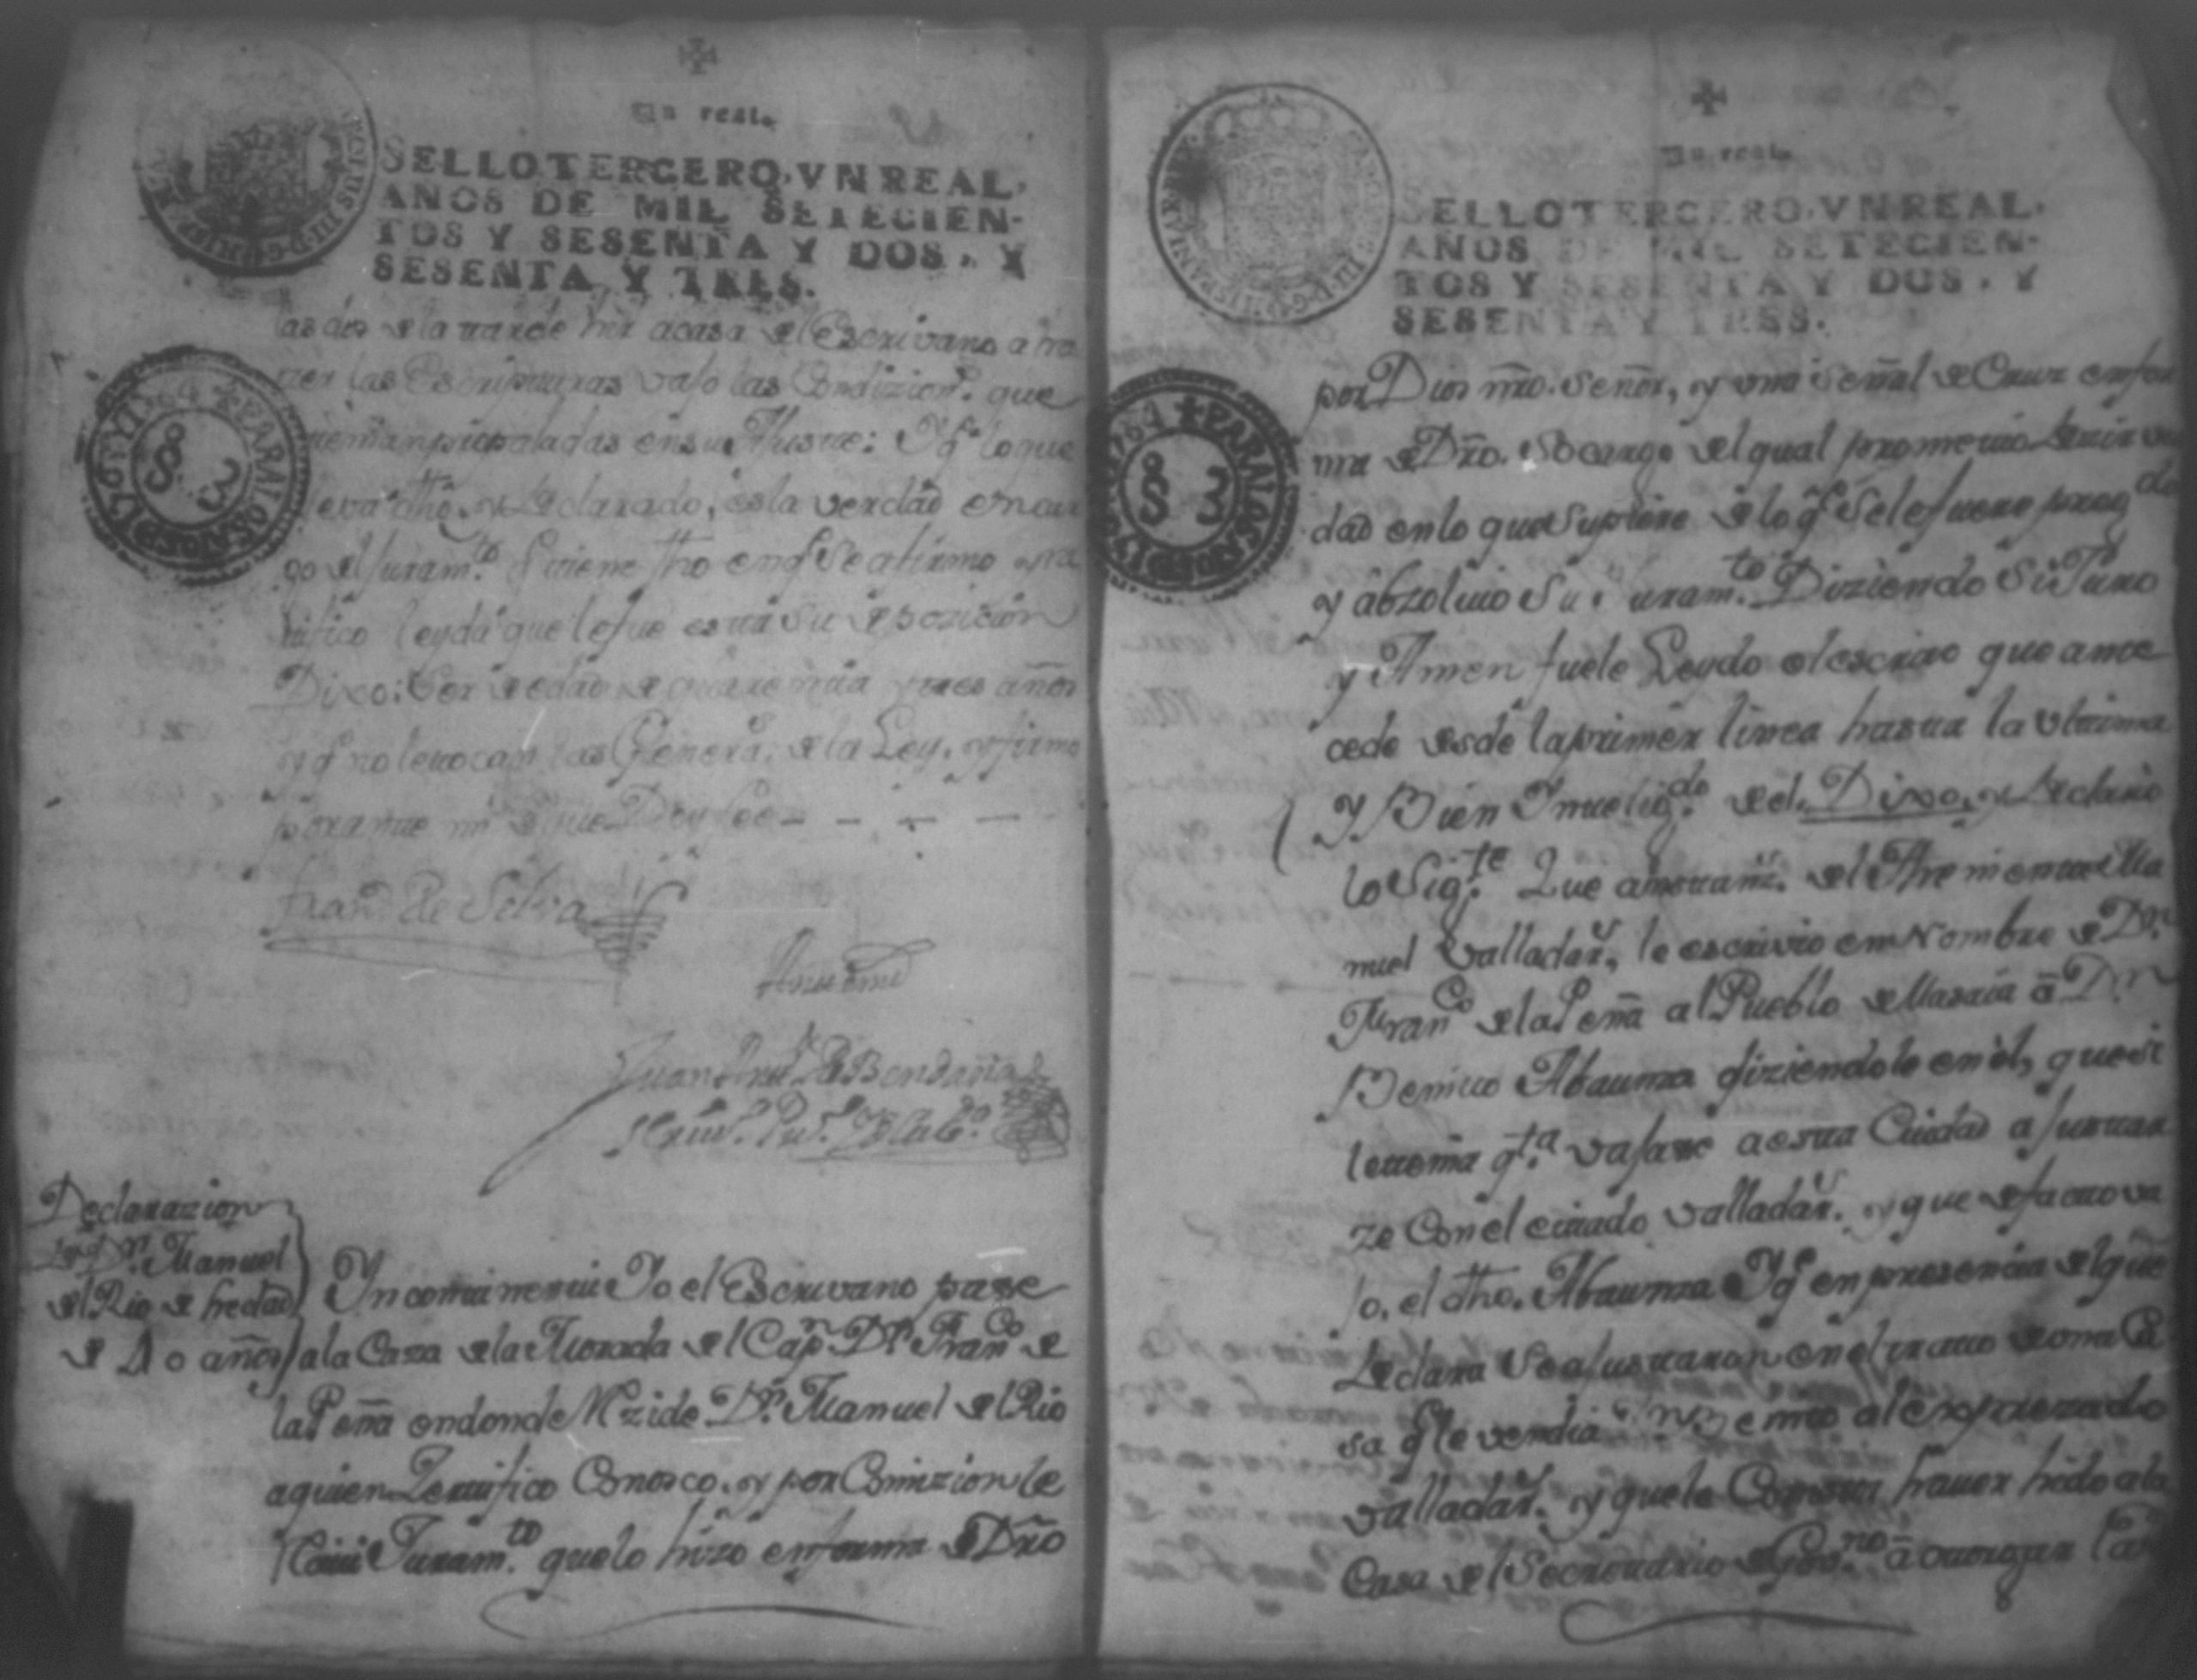 Un real.
SELLO TERCERO, VN REAL,
AÑOS DE MIL SETECIEN-
TOS Y SESENTA Y DOS, Y
SESENTA Y TRES.
las dos de la tarde a casa del Escrivano a ha
zer las Escripturas vajo las Condizion.s que
tienen propaladas en su Ajuste: Y q.e lo que
lleva dho, y declarado, es la verdad en car
go del Juram.to q.e tiene fho en q.e Se afirmo y ra
tifico leyda que le fue esta su deposicion
Dixo: Ser de edad de quarenta y tres años
y q.e no le tocan las Gener.s de la Ley, y firmo
por ante mi de que Doy fee
Fran.co de Silva
Ante mi
Juan Ant.o de Bendaña
Scriu.o Pu.co y de Cab.o
Declarazion
de D.n Manuel
del Rio de hedad
de 40 años
Yncontinenti Yo el Escrivano pase
a la Caza de la Morada del Cap.n D.n Fran.co de
la Peña en donde Rezide D.n Manuel del Rio
a quien Zertifico Conosco, y por Comizion le
Reciui Juram.to que lo hizo en forma de Dro
Un real.
SELLO TERCERO, VN REAL,
AÑOS DE MIL SETECIEN-
TOS Y SESENTA Y DOS, Y
SESENTA Y TRES.
PARA LOS AÑOS D 1764
por Dios nro. Señor, y una Señal de Cruz en for
ma de Dro. So cargo del qual prometio dezir ver
dad en lo que Supiere de lo q.e Se le fuere preg.do
y abzolvio Su Juram.to Diziendo Si Juro
y Amen fuele Leydo el escrito que ante
cede desde la primer linea hasta la Vltima
Y Bien Yntelig.do de el, Dixo, y declaro
lo Sig.te Que a instanz.s del Theniente Ma
nuel Valladar.s, le escrivio en Nombre de D.n
Fran.co de la Peña al Pueblo de Masaia â D.n
Benito Abaunza diziendole en él, que si
le tenia q.ta vajase a esta Ciudad a Justar
ze Con el citado Valladar.s y que defacto va
jo, el dho. Abaunza Y q.e en presencia del que
declara Se ajustaron en el trato de una Ca
sa q.e le vendia D.n Benito al expresado
Valladar.s y que le Consta haver hido a la
Casa del Secretario de Gov.no â otorgar las